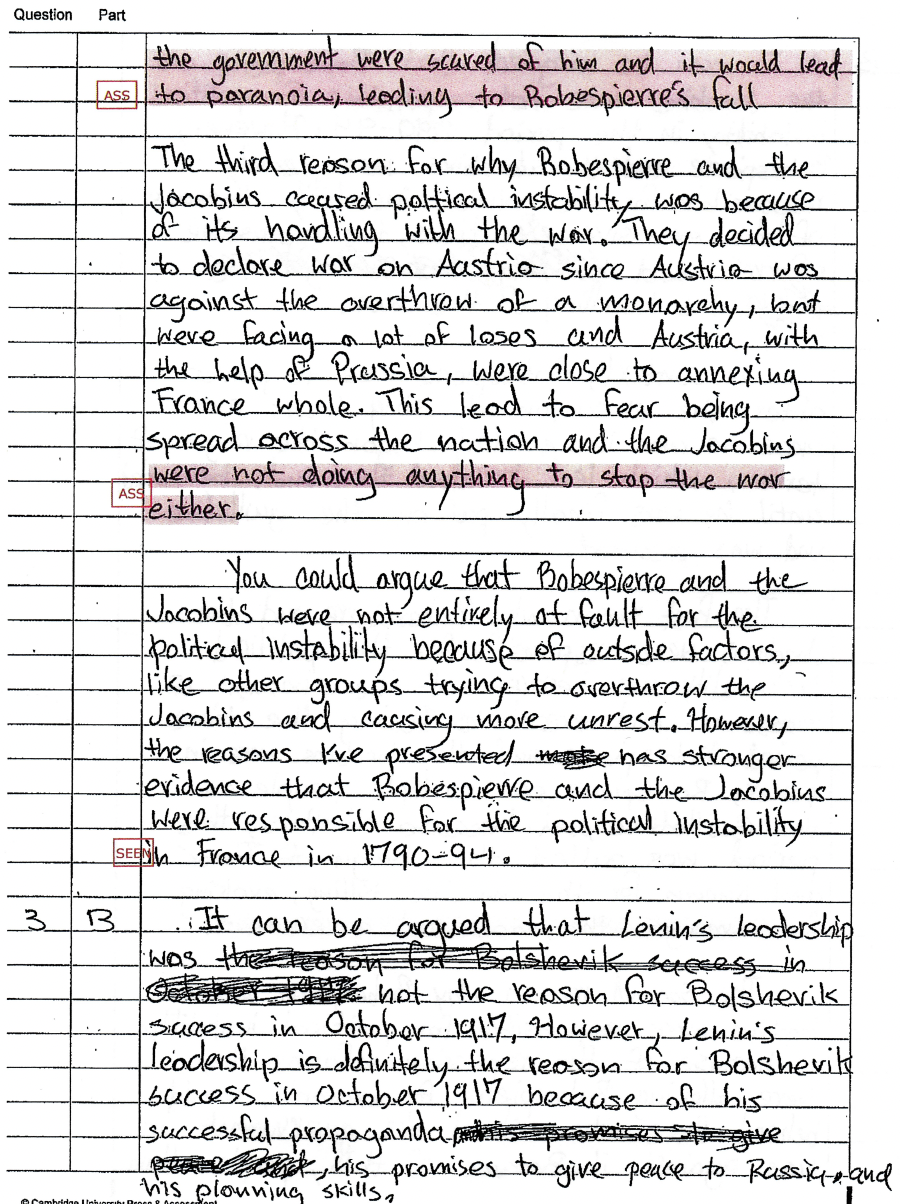 Question Part
the government were scared of him and it would lead
ASS to paranoia, leading to Bobespierre's fall
The third reason for why Bobespierre and the
Jacobius caused poltical instability, was because
of its handling with the war. They decided
to declare war on Aastria since Austria was
against the overthrow of a monarchy, but
were facing a lot of loses and Austria, with
the help of Prussia, were close to annexing
France whole. This lead to fear being
spread across the nation and the Jacobins
were not doing anything to stop the war
ASS either.
You could argue that Bobespierre and the
Jacobins were not entirely at fault for the
political instability because of outside factors,
like other groups trying to overthrow the
Jacobins and causing more unrest. However,
the reasons I've presented has stronger
evidence that Bobespierre and the Jacobins
were responsible for the political instability
SEEN in France in 1790-94.
3 B It can be argued that Lenin's leadership
was the reason for Bolshevik success in
October 1917 not the reason for Bolshevik
success in October 1917, However, Lenin's
leadership is definitely the reason for Bolshevik
success in October 1917 because of his
successful propaganda his promises to give
, his promises to give peace to Russia, and
his planning skills,
© Cambridge University Press & Assessment